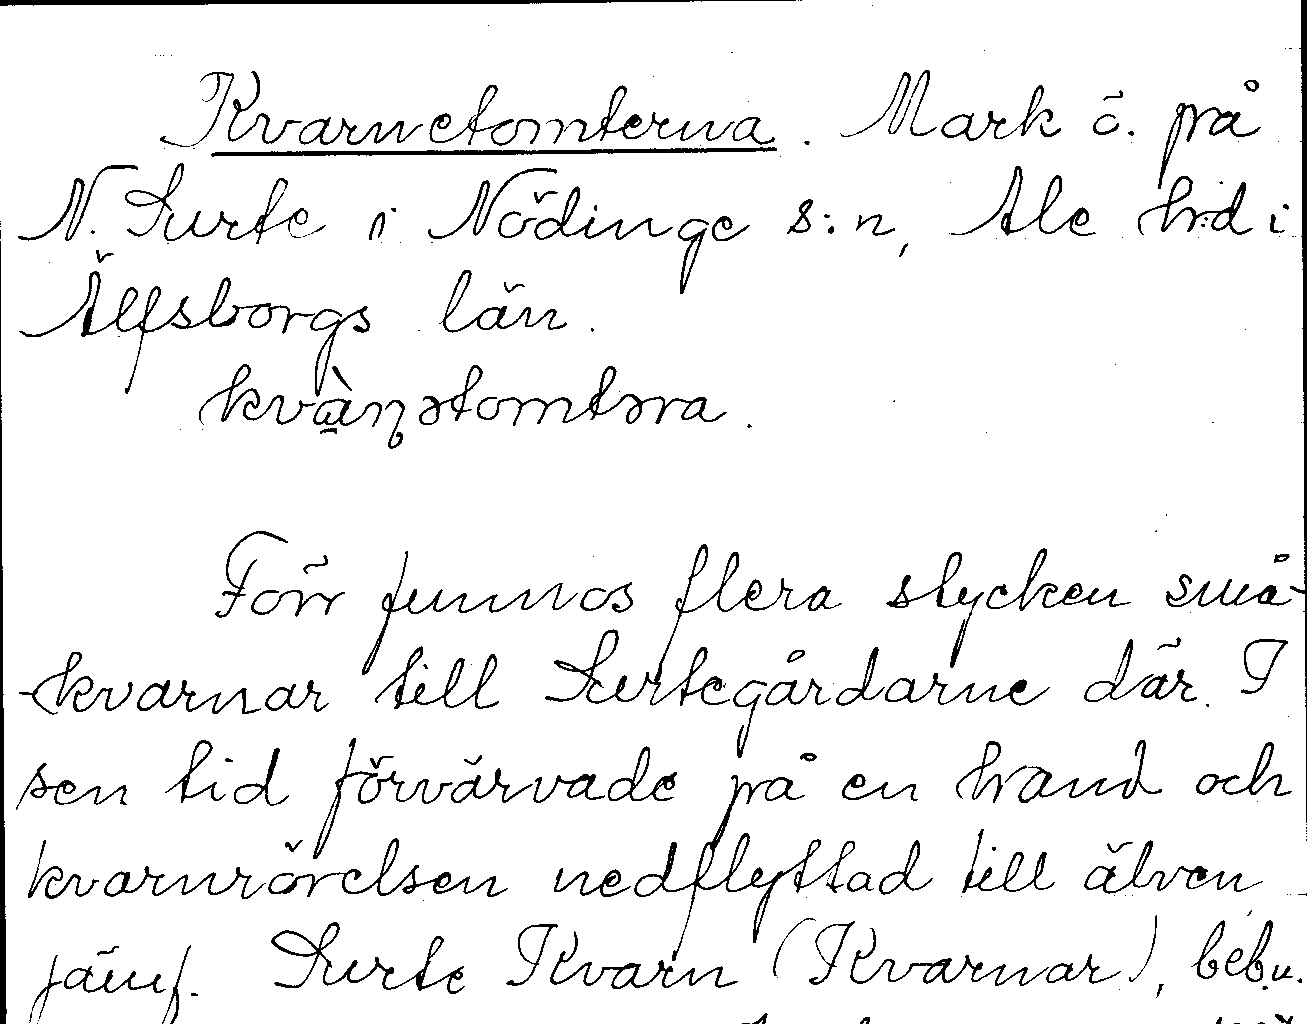 Kvarnetomterna. Mark ö. på
N. Surte i Nödinge s:n, Ale hd i
Älfsborgs län.
kvàɳətomtəra.
Förr funnos flera stycken små-
kvarnar till Surtegårdarne där. I
sen tid förvärvade på en hand och
kvarnrörelsen nedflyttad till älven,
jämf. Surte Kvarn (Kvarnar), beb.n.